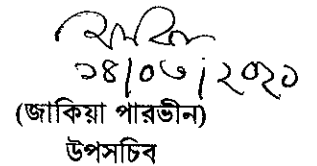 ১৪/০৬/২০২১
(জাকিয়া পারভীন)
উপসচিব